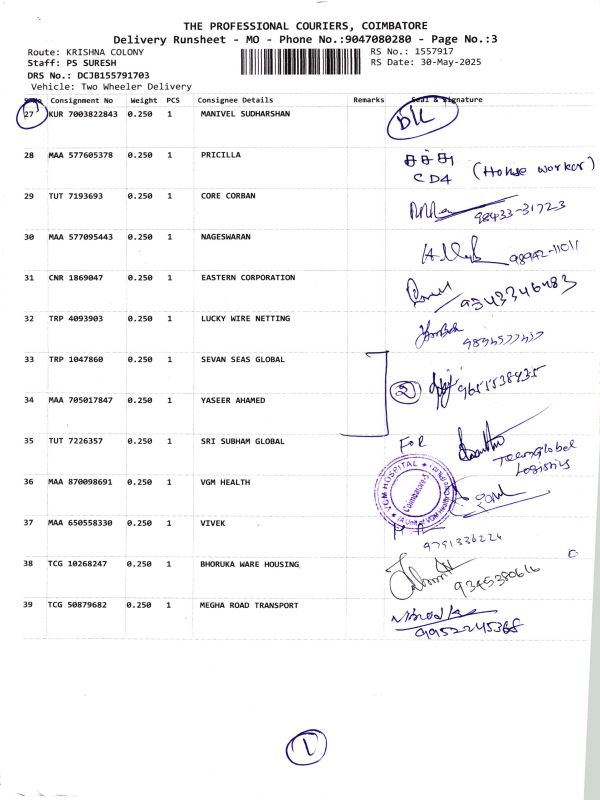 THE PROFESSIONAL COURIERS, COIMBATORE
Delivery Runsheet - MO - Phone No.:9047080280 - Page No.:3
Route: KRISHNA COLONY RS No.: 1557917
Staff: PS SURESH RS Date: 30-May-2025
DRS No.: DCJB155791703
Vehicle: Two Wheeler Delivery
S.No Consignment No Weight PCS Consignee Details Remarks Seal & Signature
27 KUR 7003822843 0.250 1 MANIVEL SUDHARSHAN
28 MAA 577605378 0.250 1 PRICILLA (House worker)
29 TUT 7193693 0.250 1 CORE CORBAN 98433-31723
30 MAA 577095443 0.250 1 NAGESWARAN 98942-11011
31 CNR 1869047 0.250 1 EASTERN CORPORATION 9343346483
32 TRP 4093903 0.250 1 LUCKY WIRE NETTING
33 TRP 1047860 0.250 1 SEVAN SEAS GLOBAL
34 MAA 705017847 0.250 1 YASEER AHAMED 2
35 TUT 7226357 0.250 1 SRI SUBHAM GLOBAL FOR
Logistics
36 MAA 870098691 0.250 1 VGM HEALTH VGM HOSPITAL Coimbatore-5
37 MAA 650558330 0.250 1 VIVEK 9791336226
38 TCG 10268247 0.250 1 BHORUKA WARE HOUSING 9345380616
39 TCG 50879682 0.250 1 MEGHA ROAD TRANSPORT
9952245368
1